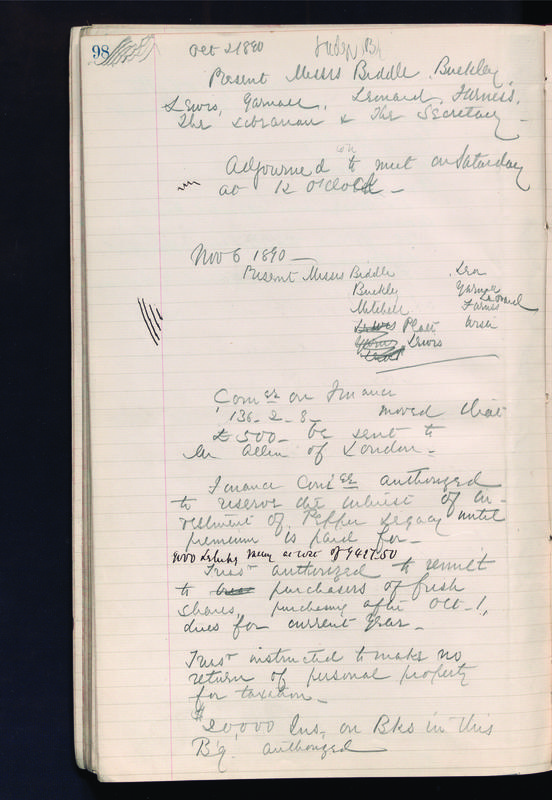 98
Oct 2 1890
Present Messrs Biddle, Buckley,
Lewis, Yarnall, Leonard, Furness,
The Librarian & The Secretary
Adjourned to meet on Saturday
at 12 O'Clock -
Nov 6 1890 -
Present Messrs Biddle
Buckley Yarnall
Mitchell Leonard
Lewis Platt Furness
Lewis
Comee on Finance
136-2-8- moved that
£500- be sent to
Mr Allen of London -
Finance Comee authorized
to reserve the interest of in-
vestment of Pepper Legacy until
premium is paid for -
at cost of 9427.50
Treasr authorized to remit
to purchasers of fresh
shares, purchasing after Oct-1,
dues for current Year -
Treasr instructed to make no
return of personal property
for taxation -
$20,000 Ins, on Bks in this
Bg. authorized